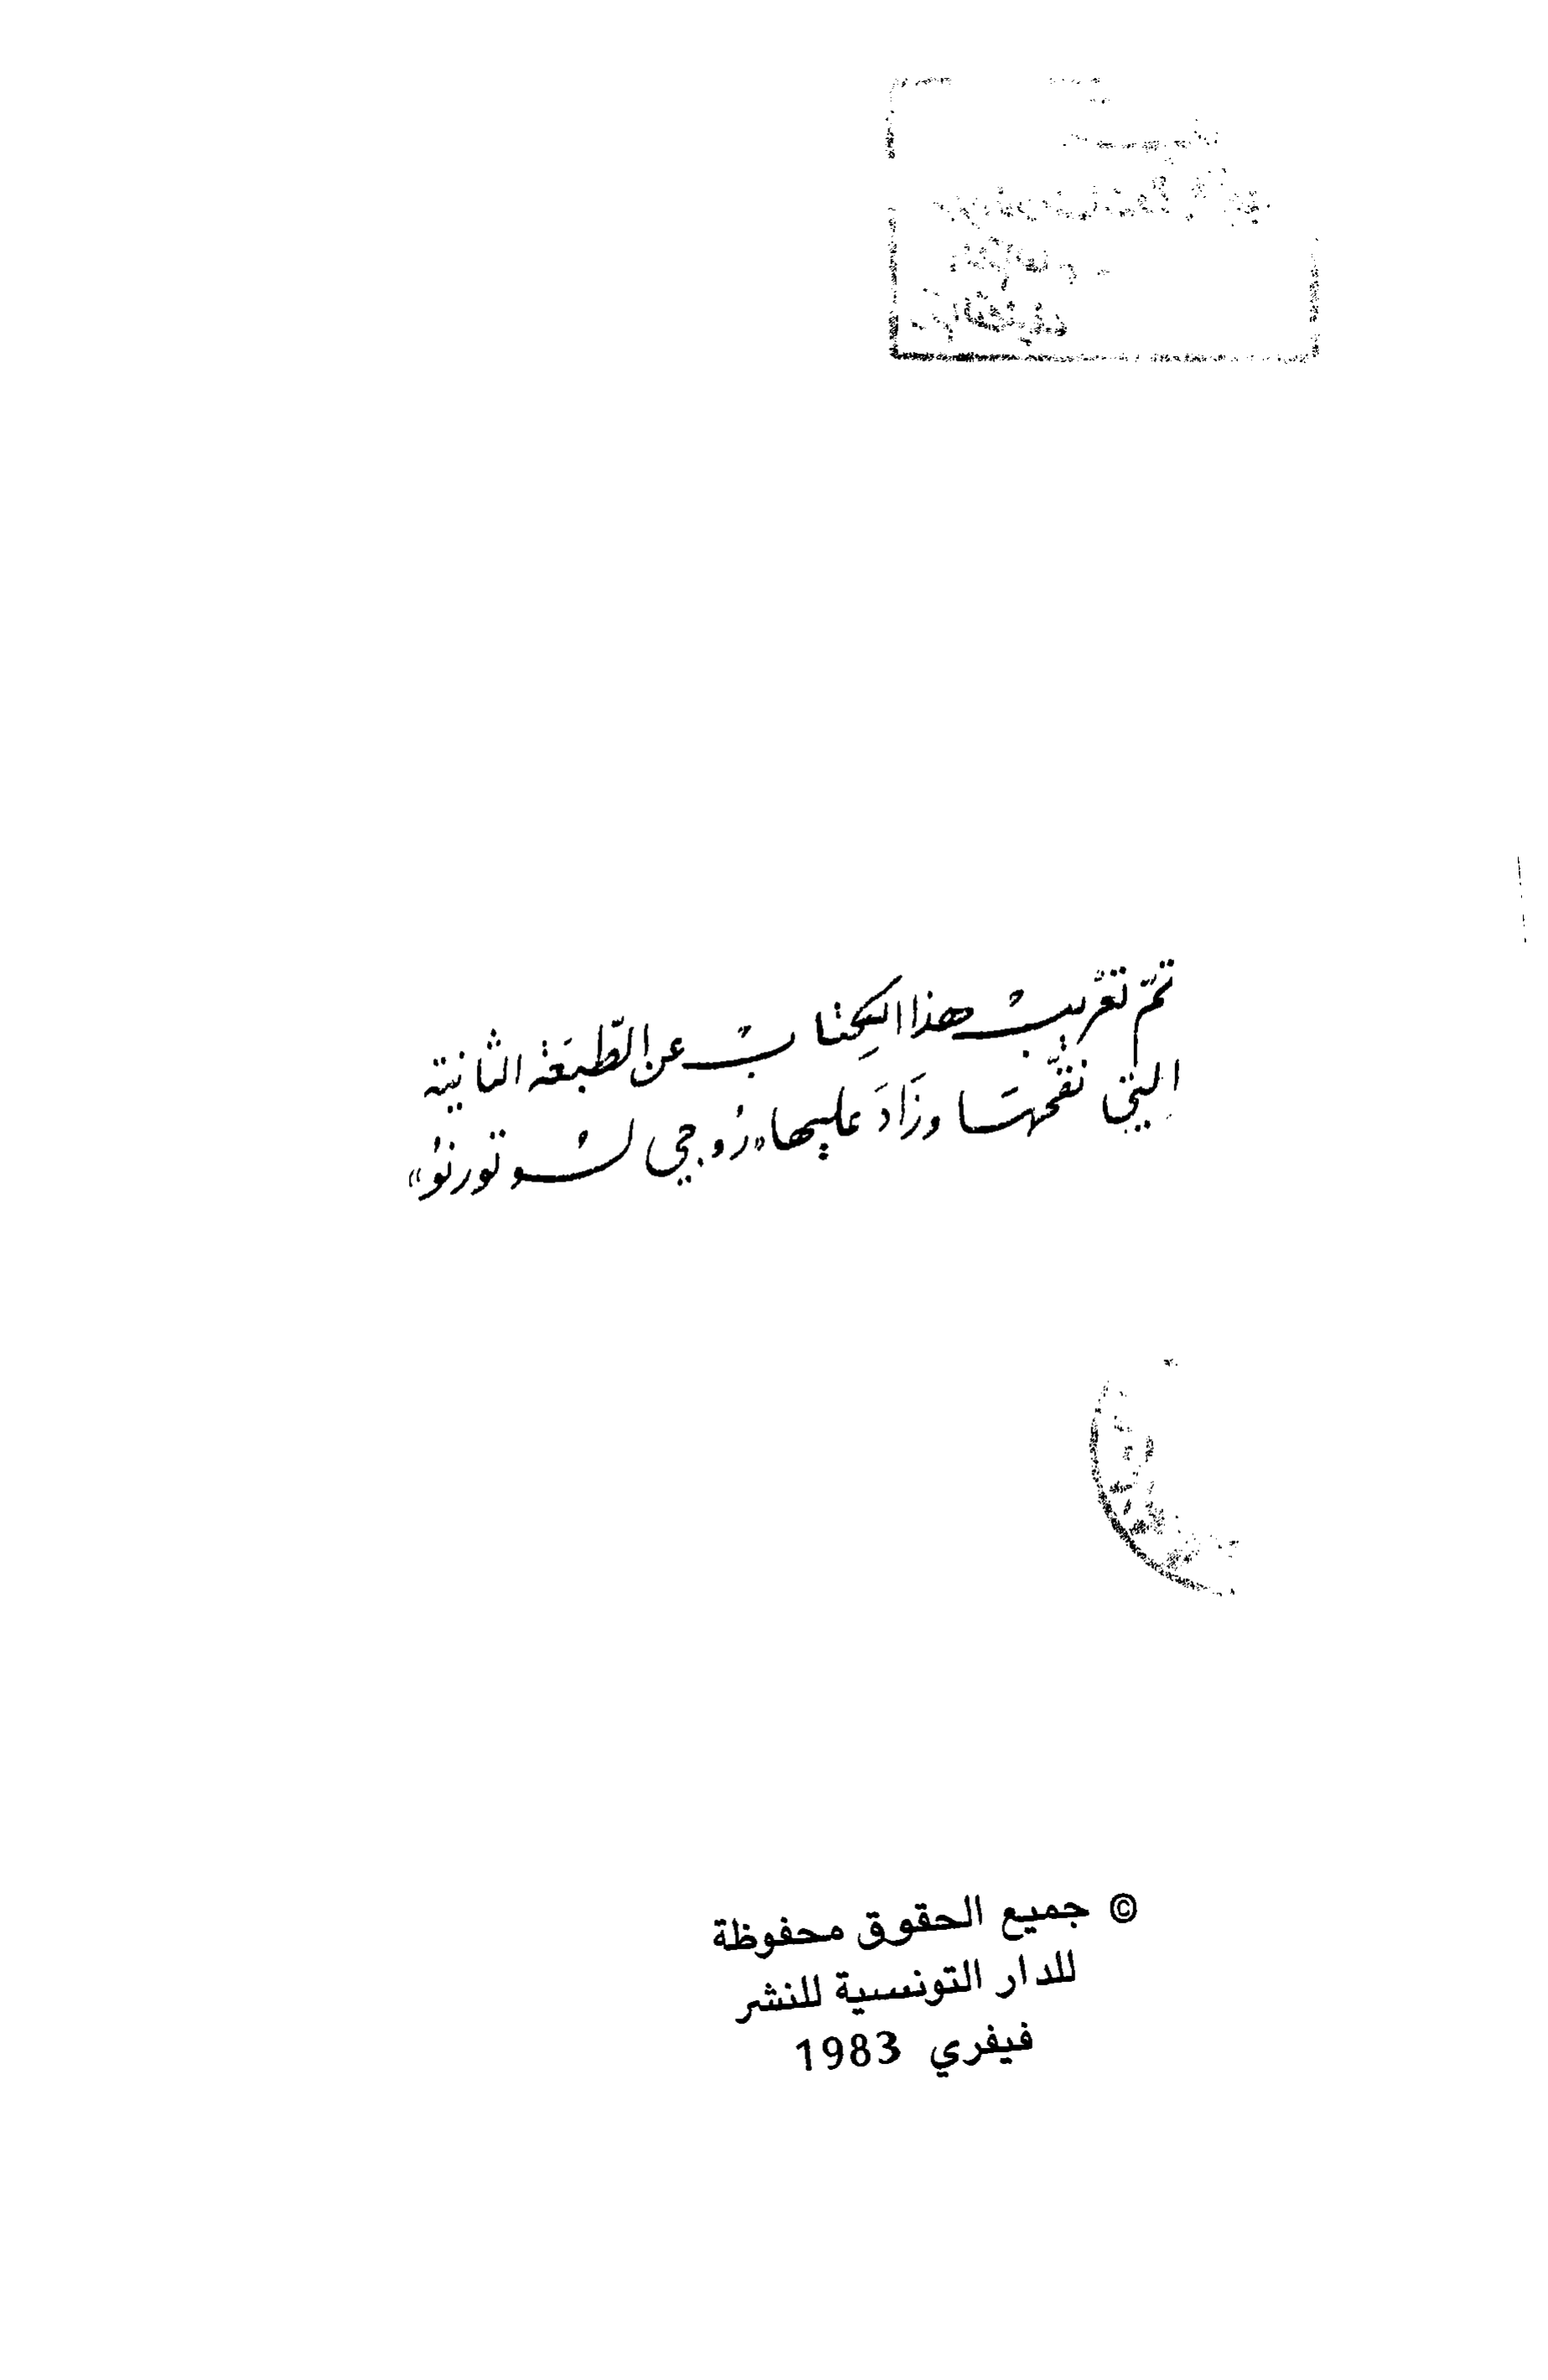 تمّ تعريب هذا الكِتاب عن الطّبعَة الثانية
التي نقّحهَا وزَادَ عليها «رُوجي لُو تورنُو»
© جميع الحقوق محفوظة
للدار التونسية للنشر
فيفري 1983